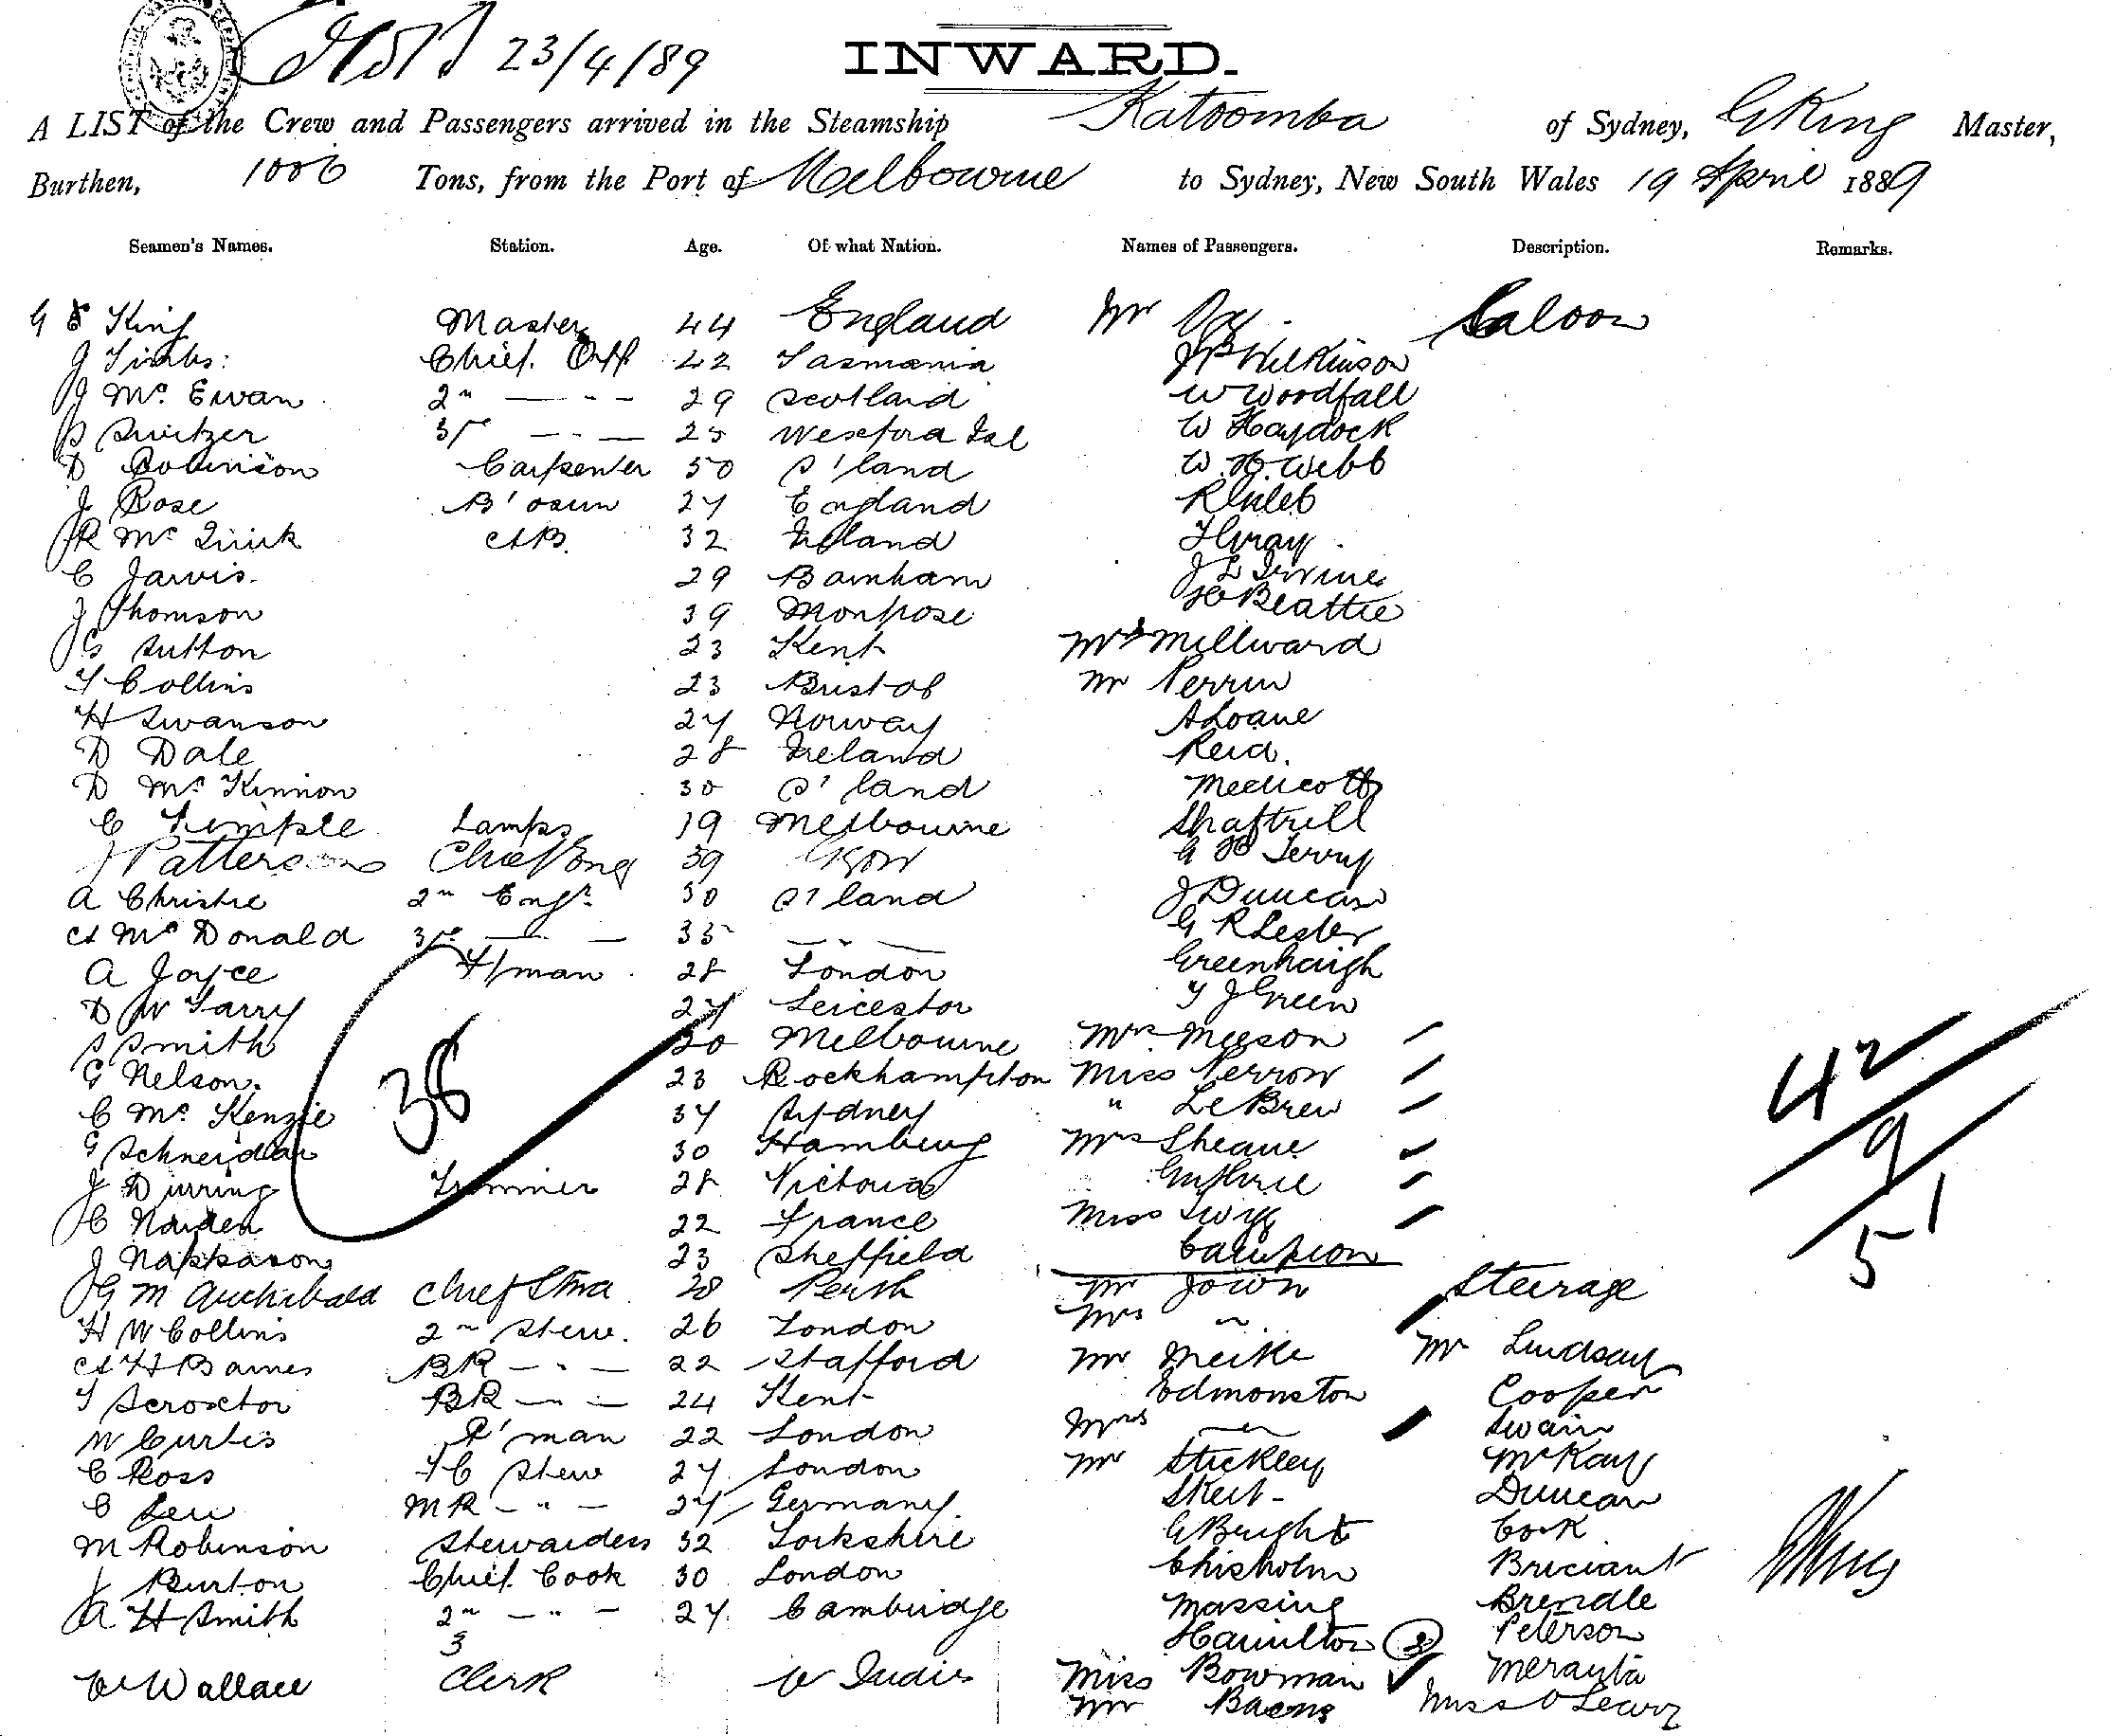 23/4/89
INWARD.
A LIST of the Crew and Passengers arrived in the Steamship Katoomba of Sydney, G King Master,
Burthen, 1006 Tons, from the Port of Melbourne to Sydney, New South Wales 19 April 1889
Seamen's Names. Station. Age. Of what Nation. Names of Passengers. Description. Remarks.
King Master 44 England Mr Saloon
J Chief. Off 42 Tasmania J Wilkinson
J Mc Ewan 2n — " — 29 Scotland W Woodfall
S Switzer 3rd — " — 25 Wexford W Haydock
D Robinson Carpenter 50 S'land W H Webb
J Rose B'osun 27 England
R Mc Quirk AB. 32 Ireland
C Jarvis. 29 Barnham J L Irvine
J Thomson 39 Monpose Beattie
G Sutton 23 Kent Mrs Millward
T Collins 23 Bristol Mr Perrin
H Swanson 27 Norway A Loane
D Dale 28 Ireland Reid.
D Mc Kinnon 30 S'land Medlicott
C Temple Lamps 19 Melbourne
J Patterson Chief Eng 39 G H Terry
A Christie 2n Engr 30 S'land J Duncan
A Mc Donald 3rd — — 35 — " — G R Lester
A Joyce F/man 28 London Greenhaigh
D W Tarry 27 Leicestor T J Green
S Smith 20 Melbourne Mrs Meeson
G Nelson. 23 Rockhampton Miss Perrow
C Mc Kenzie 38 37 Sydney " Le Brew 42
G Schneidlar 30 Hamburg Mrs Sheane 9
J Durring Trimmer 28 Victoria Guthrie 51
C 22 France Miss Twigg
J 23 Sheffield Campion
G M Archibald Chief Stwd 28 Perth Mr Steerage
H W Collins 2n Stew. 26 London Mrs "
A H Barnes BR — " — 22 Stafford Mr Meike Mr Lindsay
T Scroxtor BR — " — 24 Kent Edmonston Cooper
W Curtis P'man 22 London Mrs — " — Swain
C Ross FC Stew 27 London Mr Stickley McKay
C MR — " — 27 Germany Duncan
M Robinson Stewardess 32 Yorkshire G Bright Cook
J Burton Chief Cook 30 London Chisholm
A H Smith 2n — " — 27 Cambridge Massing Brendle
3 Hamilton 3 Peterson
Wallace Clerk W Indies Miss Bowman
Mr Miss O
G King